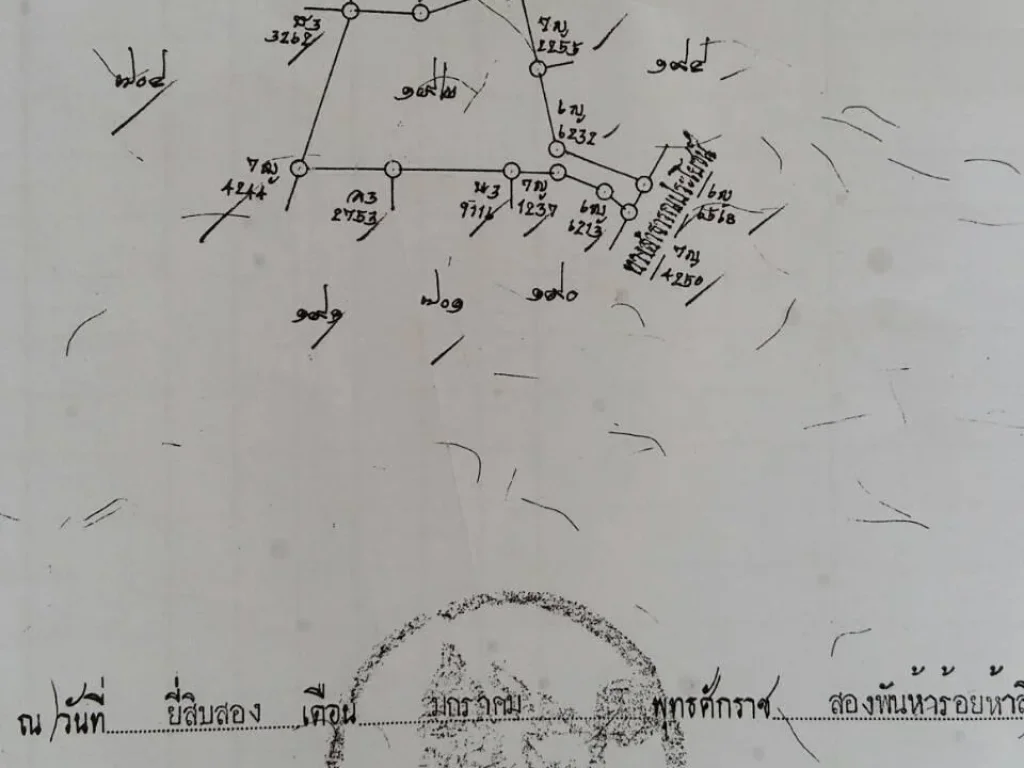 3262
7ญ
2255
๑๙๔
๗๐๔
6232
7ญ
4244
2753
น3
7ญ
1237
6213
ทางสาธารณประโยชน์
6568
7ญ
4250
๑๙๑
๗๐๑
๑๙๐
ณ วันที่ ยี่สิบสอง เดือน มกราคม พุทธศักราช สองพันห้าร้อยห้าสิ